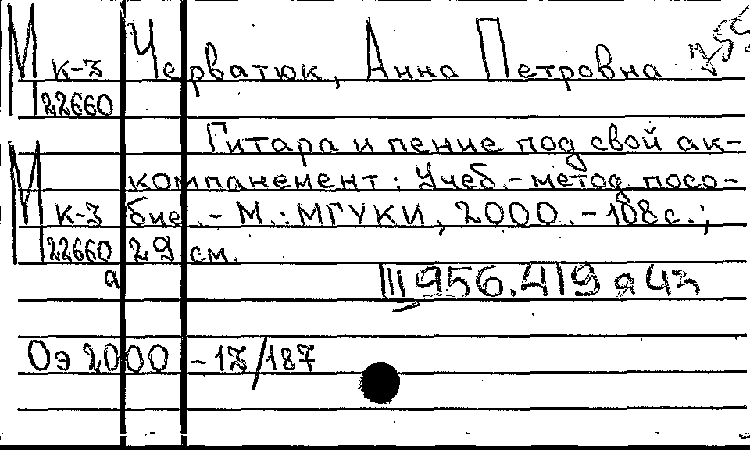 М к-3 Черватюк, Анна Петровна
22660
Гитара и пение под свой ак-
М компанемент: Учеб.-метод. посо-
к-3 бие. - М.: МГУКИ, 2000. - 108 с.;
22660 29 см.
а Щ956.419я43
Оэ 2000 - 18/187